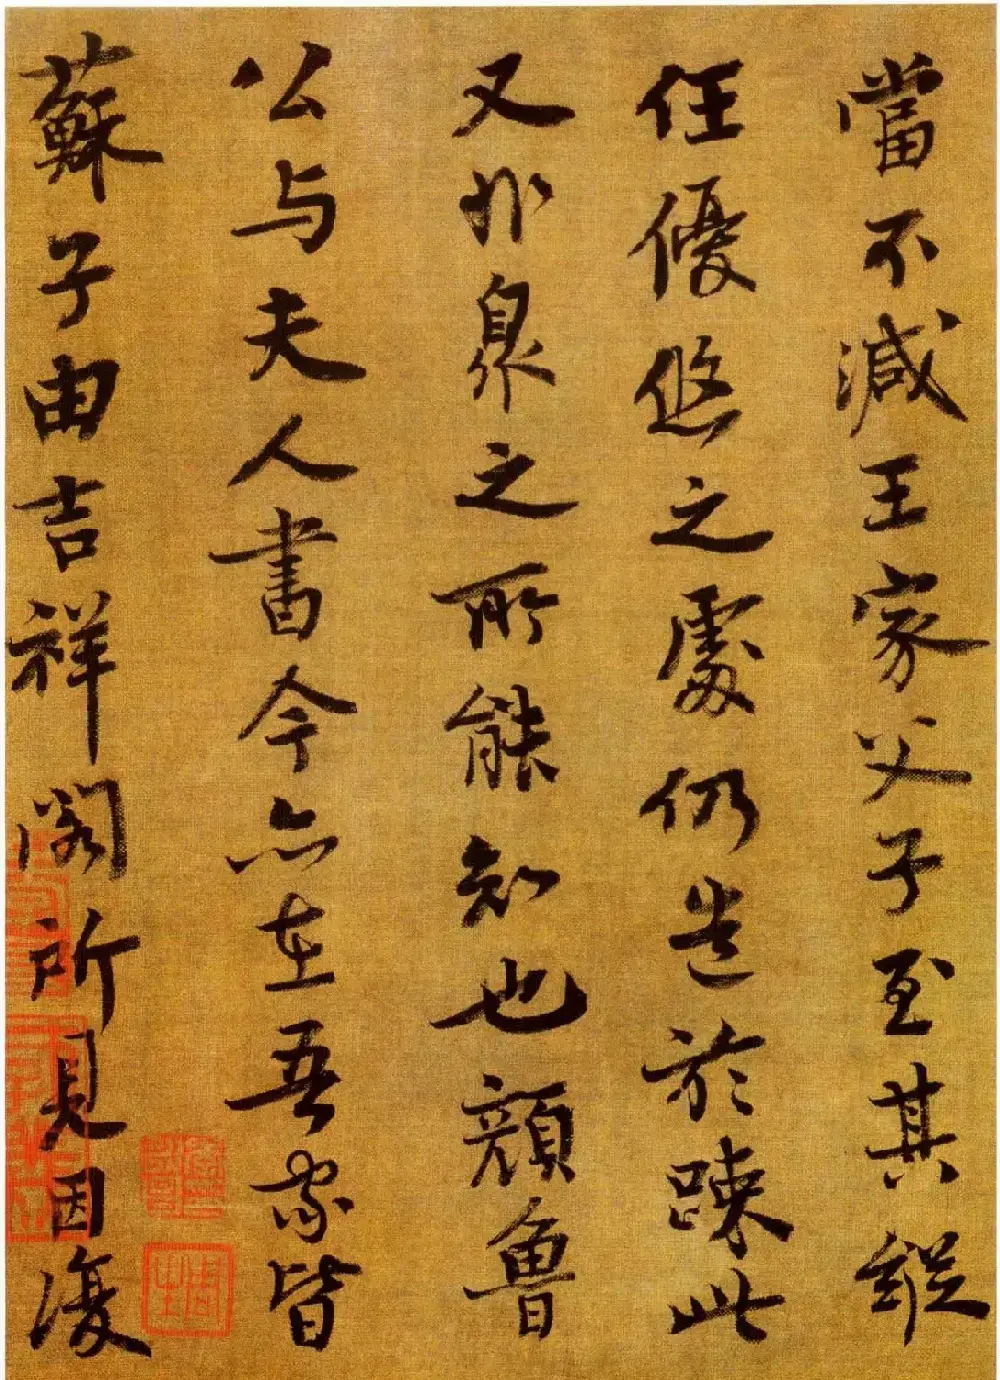 當不減王家父子至其縱
任優悠之處仍造於踈此
又非泉之所能知也顏魯
公与夫人書今亦在吾家皆
蘇子由吉祥閣所見因復